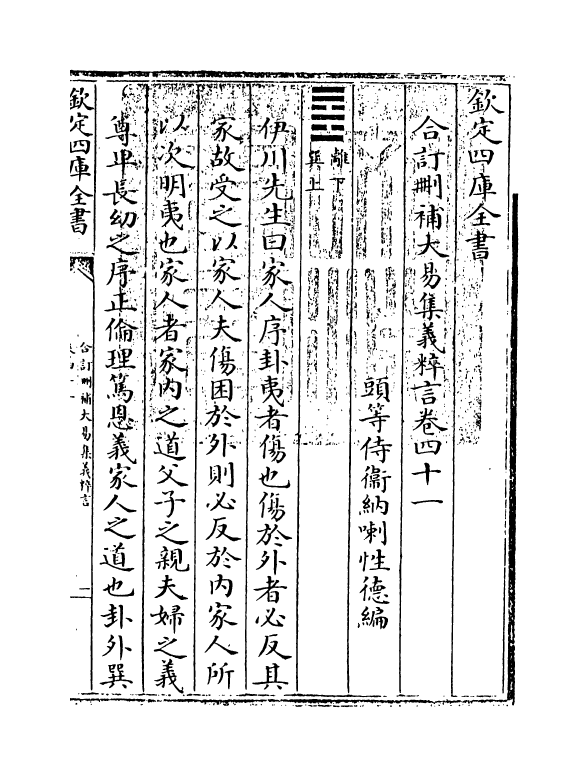 欽定四庫全書
合訂刪補大易集義粹言卷四十一
頭等侍衞納喇性德編
離下
巽上
伊川先生曰家人序卦夷者傷也傷於外者必反其
家故受之以家人夫傷困於外則必反於內家人所
以次明夷也家人者家內之道父子之親夫婦之義
尊卑長幼之序正倫理篤恩義家人之道也卦外巽
欽定四庫全書
合訂刪補大易集義粹言
一